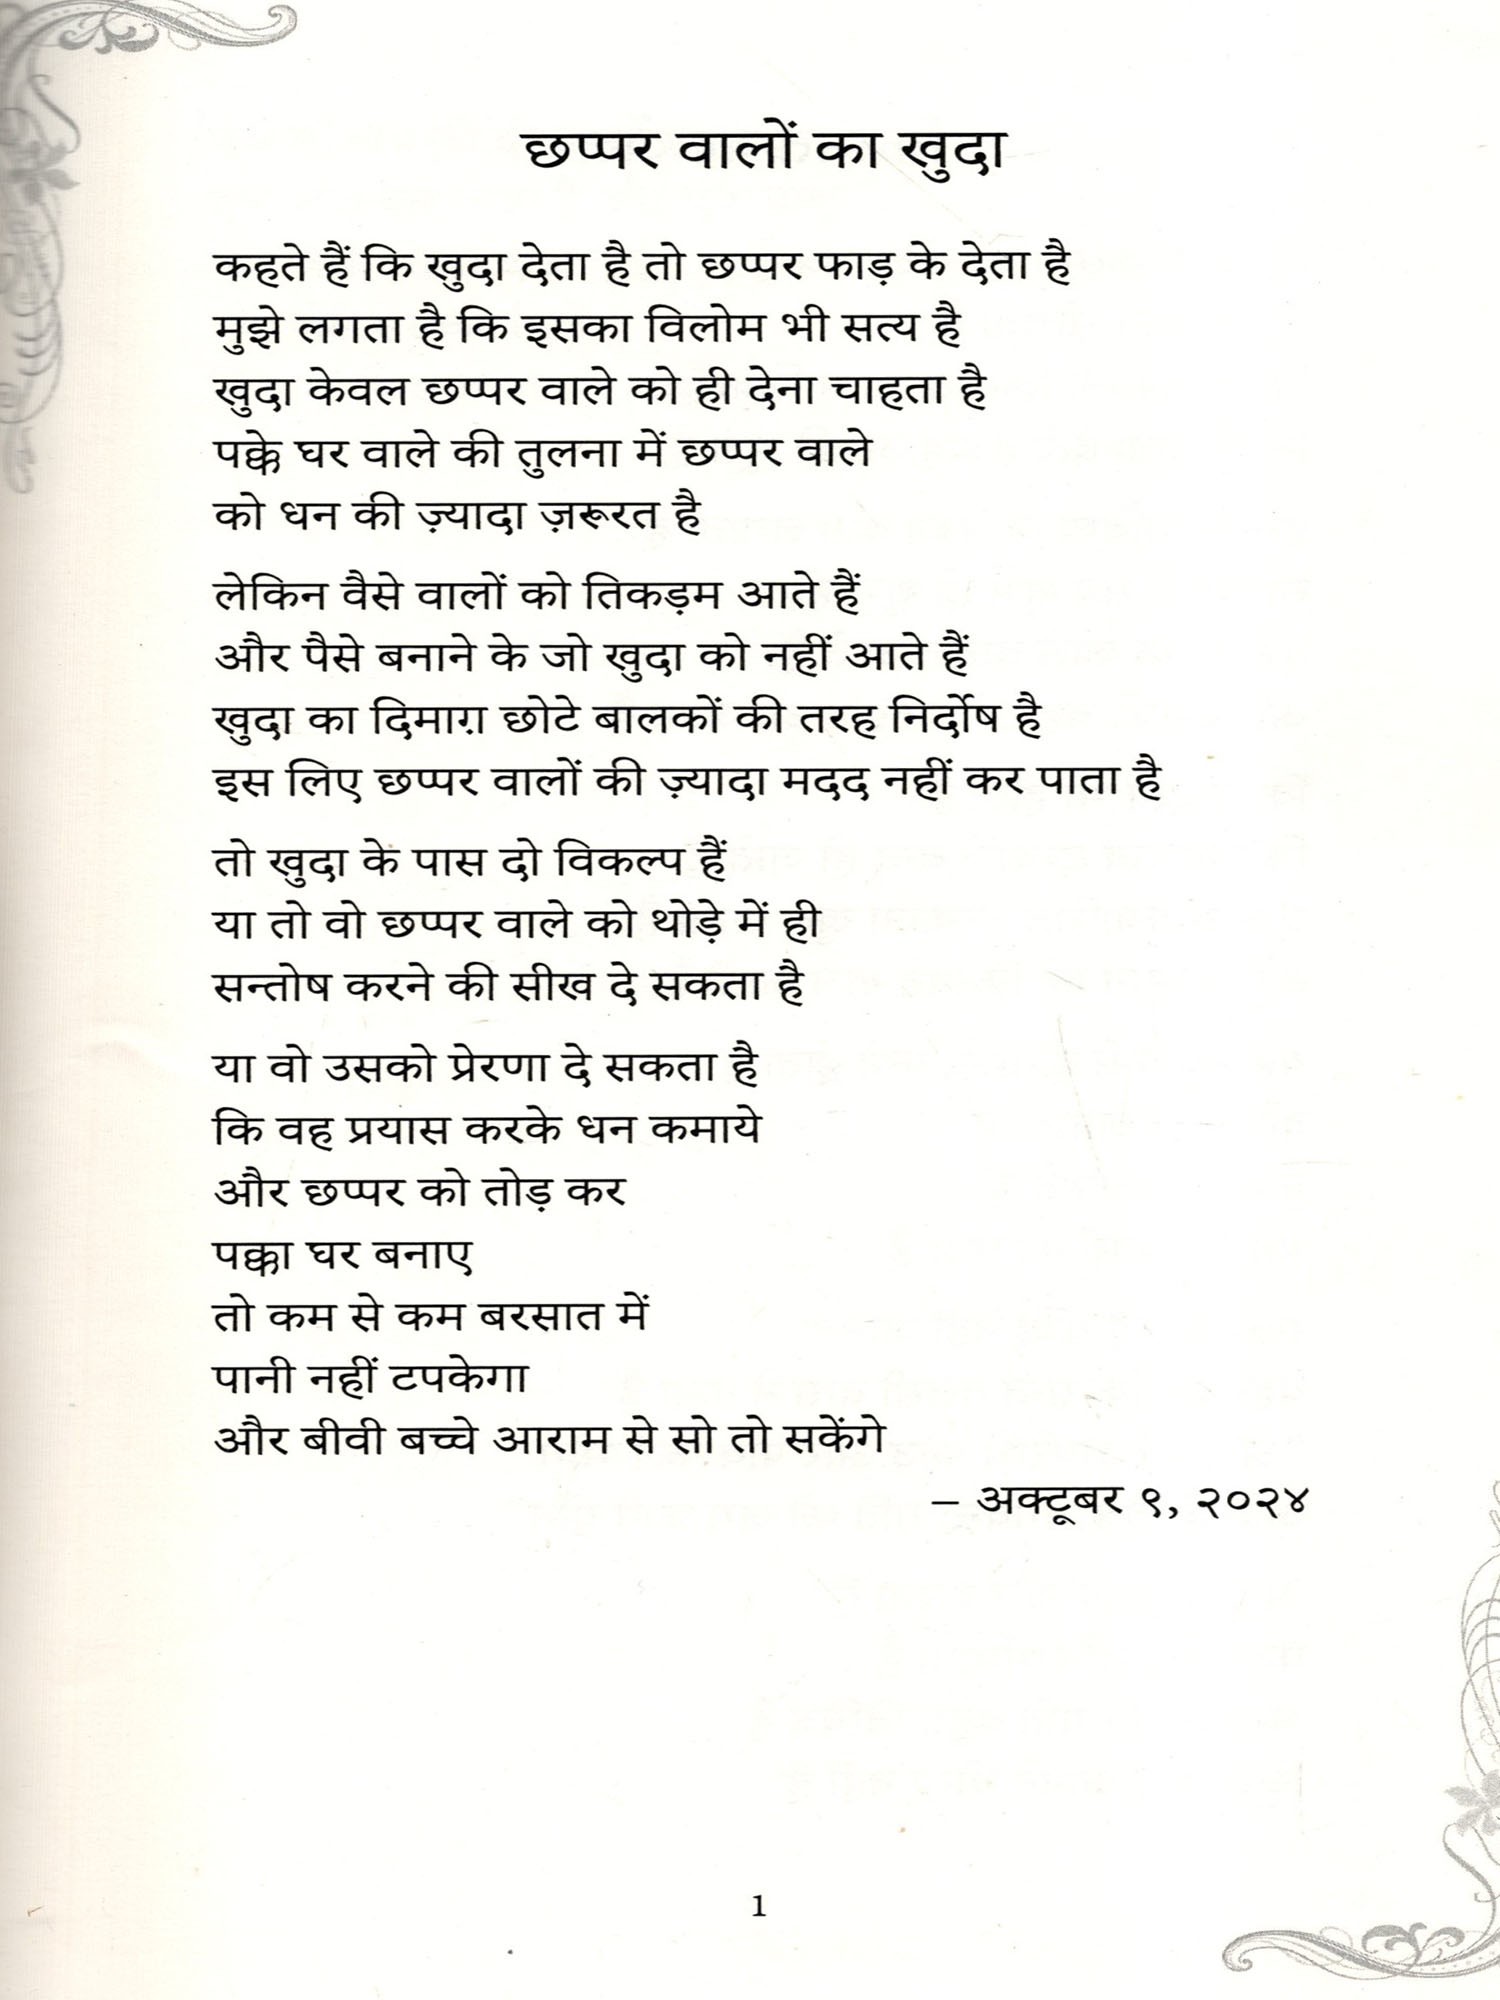 छप्पर वालों का खुदा
कहते हैं कि खुदा देता है तो छप्पर फाड़ के देता है
मुझे लगता है कि इसका विलोम भी सत्य है
खुदा केवल छप्पर वाले को ही देना चाहता है
पक्के घर वाले की तुलना में छप्पर वाले
को धन की ज़्यादा ज़रूरत है
लेकिन वैसे वालों को तिकड़म आते हैं
और पैसे बनाने के जो खुदा को नहीं आते हैं
खुदा का दिमाग़ छोटे बालकों की तरह निर्दोष है
इस लिए छप्पर वालों की ज़्यादा मदद नहीं कर पाता है
तो खुदा के पास दो विकल्प हैं
या तो वो छप्पर वाले को थोड़े में ही
सन्तोष करने की सीख दे सकता है
या वो उसको प्रेरणा दे सकता है
कि वह प्रयास करके धन कमाये
और छप्पर को तोड़ कर
पक्का घर बनाए
तो कम से कम बरसात में
पानी नहीं टपकेगा
और बीवी बच्चे आराम से सो तो सकेंगे
– अक्टूबर ९, २०२४
1